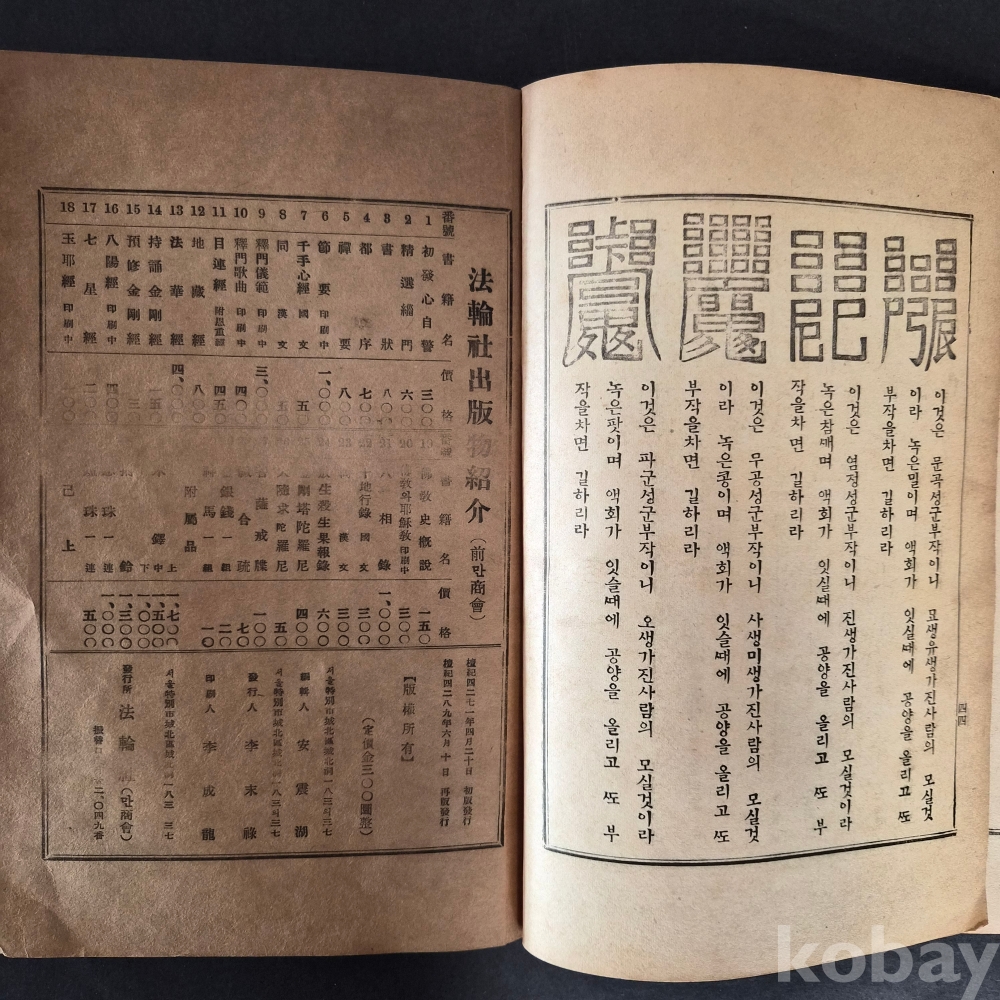 이것은 문곡성군부작이니 묘생유생가진사람의 모실것
이라 녹은밀이며 액회가 잇실ᄯᅢ에 공양을올리고 ᄯᅩ
부작을차면 길하리라
이것은 염정성군부작이니 진생가진사람의 모실것이라
녹은참ᄭᅢ며 액회가 잇실ᄯᅢ에 공양을 올리고 ᄯᅩ 부
작을차면 길하리라
이것은 무곡성군부작이니 사생미생가진사람의 모실것
이라 녹은콩이며 액회가 잇슬ᄯᅢ에 공양을 올리고 ᄯᅩ
부작을차면 길하리라
이것은 파군성군부작이니 오생가진사람의 모실것이라
녹은팟이며 액회가 잇슬ᄯᅢ에 공양을 올리고 ᄯᅩ 부
작을차면 길하리라
四四
法輪社出版物紹介 (前만商會)
番號 書籍名 價格 書籍名 價格
1 初發心自警 三〇 19 佛敎史槪說 一五〇
2 精選緇門 六〇 20 印刷中 三〇〇
3 書狀 八〇 21 相錄 一、〇〇〇
4 都序 七〇 地行錄 國文 三〇〇
5 禪要 八〇 漢文 三〇〇
6 節要 印刷中 一、〇〇 生殺生果報錄 六〇〇
7 千手心經 國漢文 五〇 塔陀羅尼 四〇〇
8 同 漢文 五〇 陀羅尼 五〇
9 釋門儀範 三、〇 菩薩戒牒 一〇〇
10 釋門歌曲 印刷中 四〇 合疏 七〇
11 目連經 附恩重經 四五 銀錢 一組 二〇〇
12 地藏經 八〇 馬 一組 一〇
13 法華經 四、〇 附屬品 上 一、七〇〇
14 持誦金剛經 一五 鐸 中 一、五〇〇
15 預修金剛經 三〇 鈴 下 一、〇〇〇 一、三〇〇
16 八陽經 印刷中 四〇 珠 一連 一、〇〇〇
17 七星經 二〇 珠 一連 五〇〇
18 玉耶經 印刷中 己上
檀紀四二七一年四月二十日 初版發行
檀紀四二八九年六月十日 再版發行
【版權所有】
(定價金三〇〇圜整)
서울特別市城北區城北洞一八三의三七
編輯人 安震湖
서울特別市城北區城北洞一八三의三七
發行人 李末祿
印刷人 李成龍
서울特別市城北區城北洞一八三의三七
發行所 法輪社 (만商會)
振替口 二、〇四九番
kobay